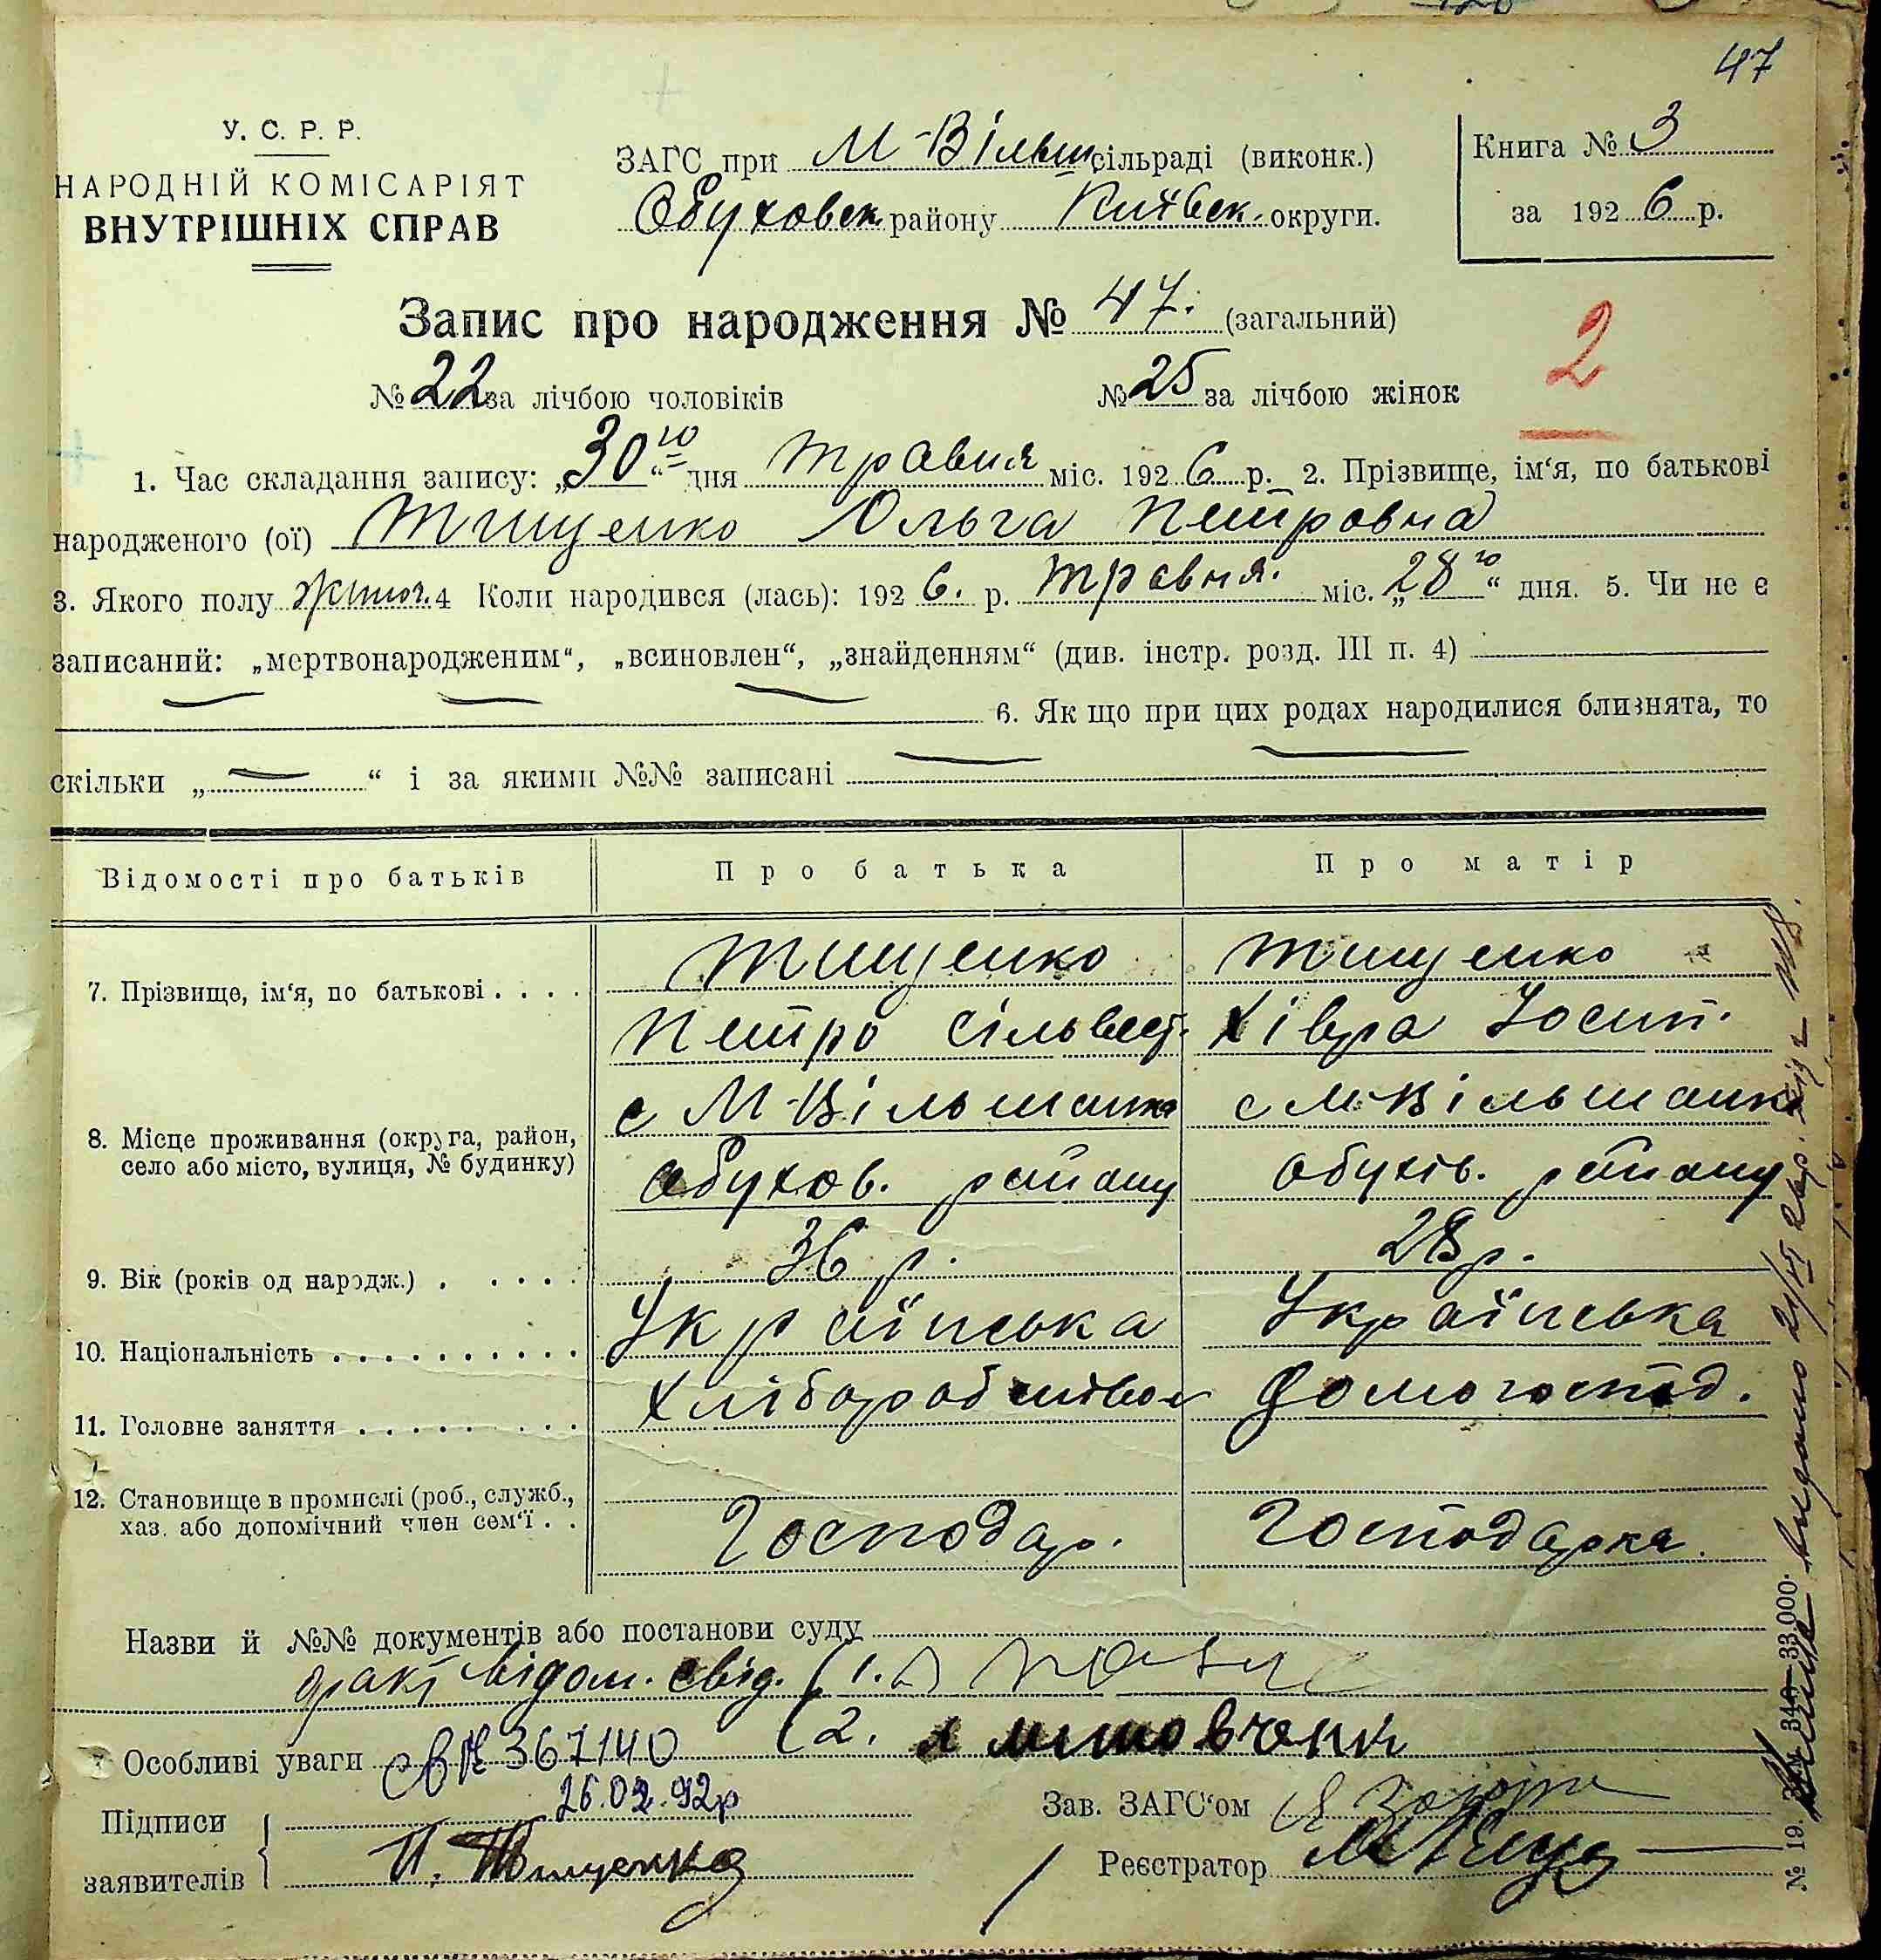 47
У. С. Р. Р.
НАРОДНІЙ КОМІСАРІЯТ
ВНУТРІШНІХ СПРАВ
ЗАГС при М-Вільш сільраді (виконк.)
Обуховск району Київск. округи.
Книга № 3
за 1926 р.
Запис про народження № 47. (загальний)
2
№ 22 за лічбою чоловіків № 25 за лічбою жінок
1. Час складання запису: „30го“ дня травня міс. 1926 р. 2. Прізвище, ім‘я, по батькові
народженого (ої) Тищенко Ольга Петровна
3. Якого полу жиноч. 4 Коли народився (лась): 1926. р. травня. міс. „28го“ дня. 5. Чи не є
записаний: „мертвонародженим“, „всиновлен“, „знайденням“ (див. інстр. розд. III п. 4)
6. Як що при цих родах народилися близнята, то
скільки „ — “ і за якими №№ записані
Відомості про батьків Про батька Про матір
7. Прізвище, ім‘я, по батькові . . . . Тищенко Тищенко
Петро Сільвест. Хівря Йосип.
8. Місце проживання (округа, район, село або місто, вулиця, № будинку) с М-Вільшанка с М-Вільшанка
Обухов. району Обухів. району
9. Вік (років од нарοдж.) . . . . . 36 р. 28 р.
10. Національність . . . . . . . . . . Українська Українська
11. Головне заняття . . . . . . . . . Хліборобство Домогоспод.
12. Становище в промислі (роб., служб.,
хаз. або допомічний член сем‘ї . . Господар. Господарка.
Назви й №№ документів або постанови суду
факт відом. свід. (1.
(2. Литовченк
Особливі уваги св № 367140
26.02.92р
Підписи
заявителів П. Тищенко
Зав. ЗАГС‘ом
Реєстратор
№ 19. 33,000.
видано